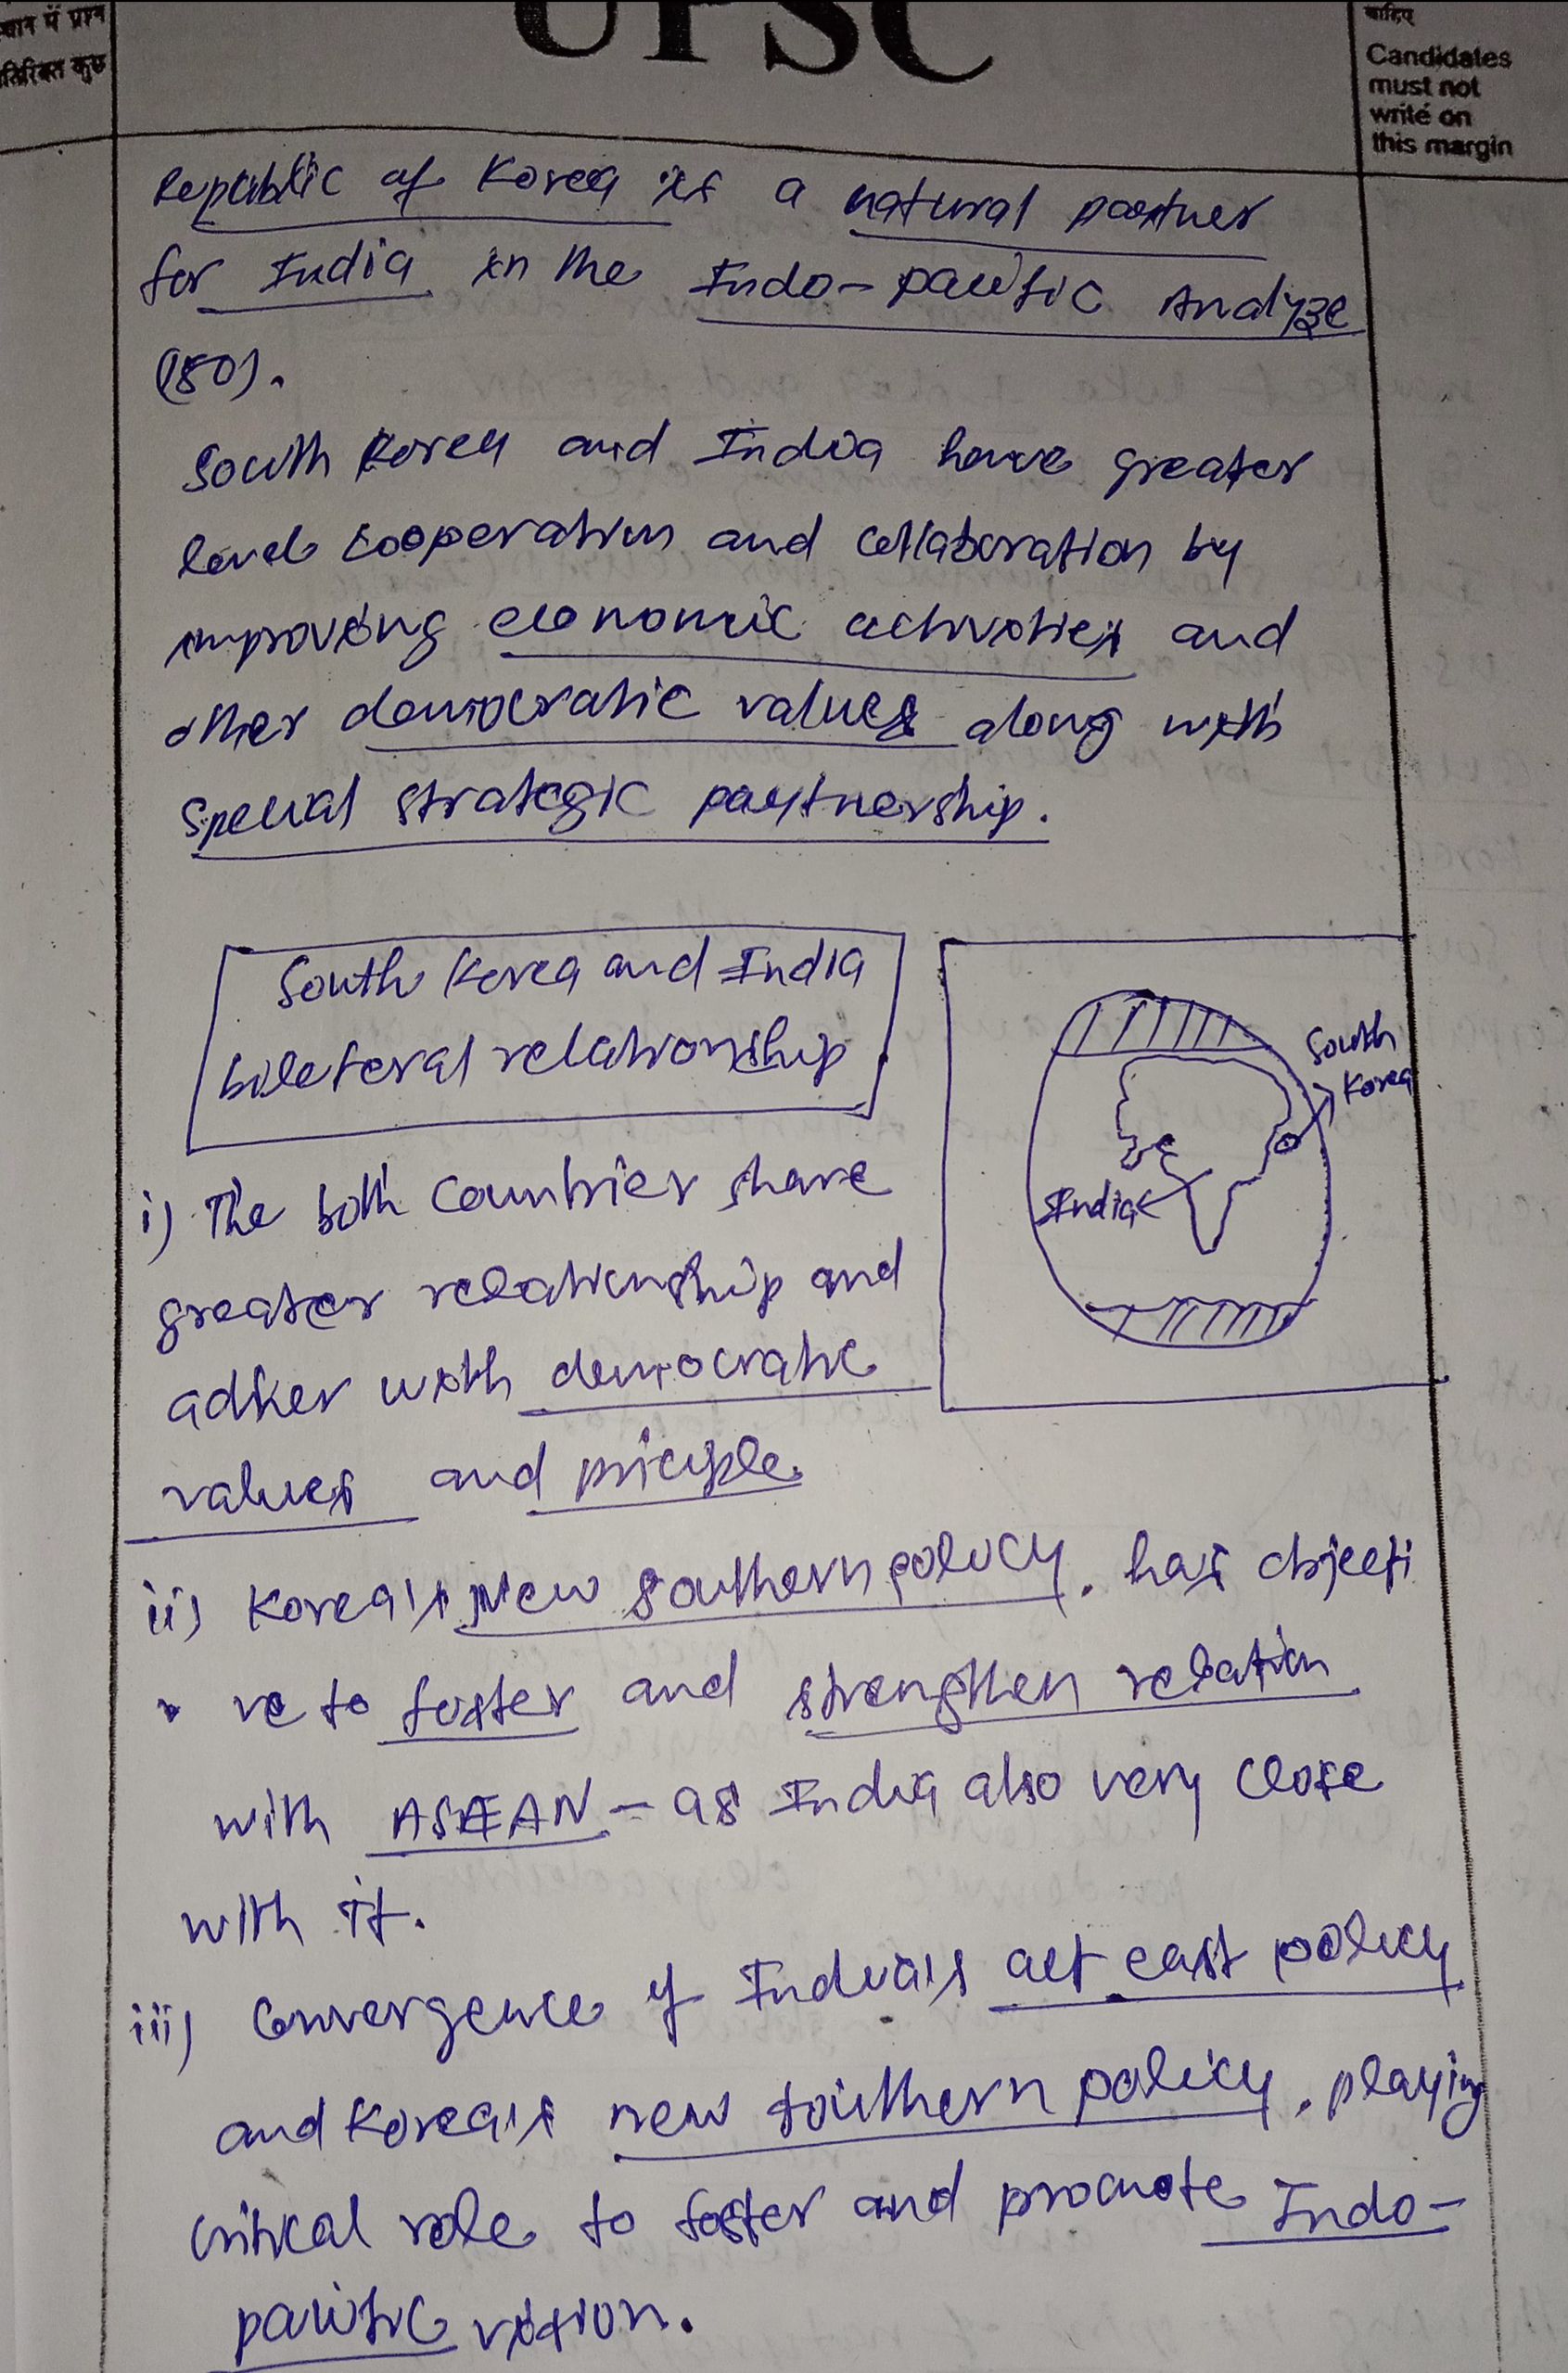 स्थान में प्रश्न
तिरिक्त कुछ
UPSC
चाहिए
Candidates
must not
write on
this margin
Republic of Korea is a natural partner
for India in the Indo-pacific Analyze
(150).
South Korea and India have greater
level cooperation and collaboration by
improving economic activities and
other democratic values along with
special strategic partnership.
South Korea and India
bileteral relationship
South
Korea
India
i) The both Countries share
greater relationship and
adher with democratic
values and priciple.
ii) Korea's New Southern policy. has objecti
ve to foster and strengthen relation
with ASEAN - as India also very close
with it.
iii) Convergence of India's act east policy
and Korea's new southern policy. playing
critical role to foster and promote Indo-
pacific vision.